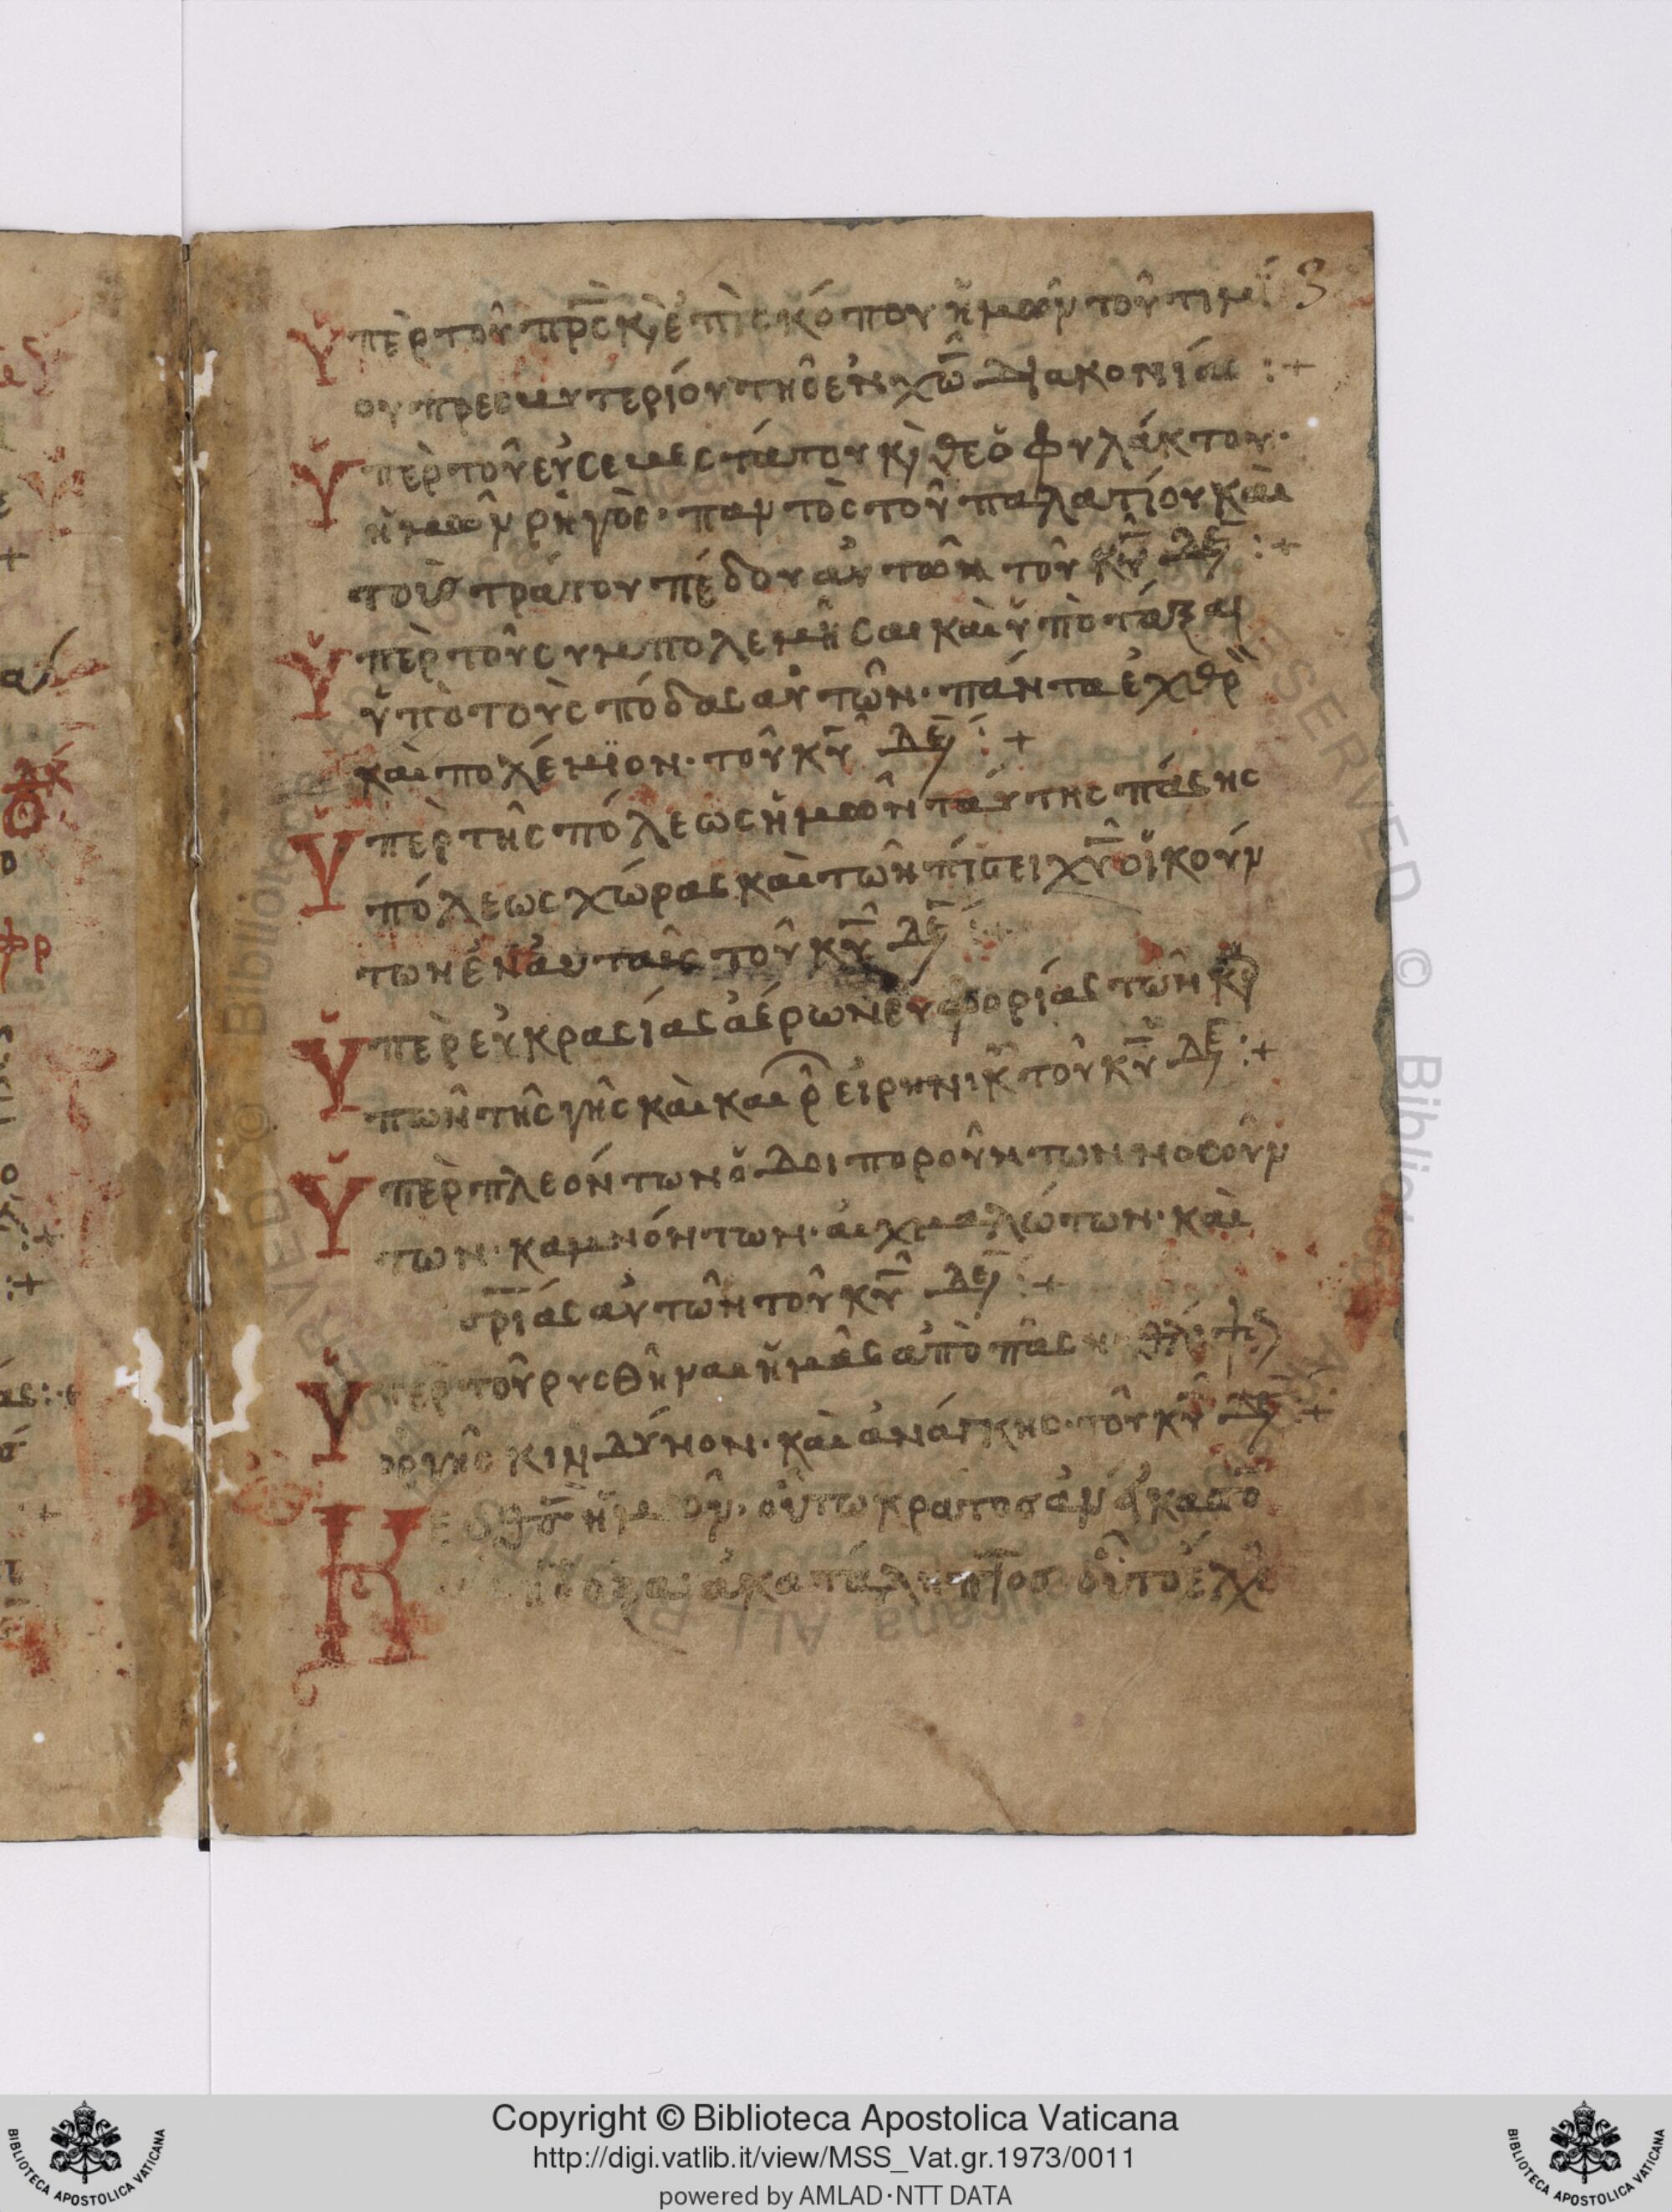 3
Ὑπὲρ τοῦ πρ̅ς κ̀ ἐπισκόπου ἡμῶν τοῦ τιμί
ου πρεσβυτερίου τῆς ἐν χω̅ διακονίας :+
Ὑπὲρ τοῦ εὐσεβεστάτου κ̀ θεοφυλάκτου·
ἡμῶν ῥηγός· παντὸς τοῦ παλατίου καὶ
τοῦ στρατουπέδου αὐτῶν τοῦ κυ̅ δε̅ :+
Ὑπὲρ τοῦ συμπολεμῆσαι καὶ ὑποτάξαι
ὑπὸ τοὺς πόδας αὐτῶν· πάντα ἐχθρ
καὶ πολέμιον· τοῦ κυ̅ δε̅ :+
Ὑπὲρ τῆς πόλεως ἡμῶν ταύτης πάσης
πόλεως χώρας καὶ τῶν πίστει χυ̅ οἰκούν
των ἐν αὐταῖς τοῦ κυ̅ δε̅ :+
Ὑπὲρ εὐκρασίας ἀέρων εὐφορίας τῶν κρ
πῶν τῆς γῆς καὶ καιρ̂ εἰρηνικ̂ τοῦ κυ̅ δε̅ :+
Ὑπὲρ πλεόντων ὁδοιπορούν των νοσούν
των· καμνόντων· αἰχμαλώτων· καὶ
σρ̅ίας αὐτῶν τοῦ κυ̅ δε̅ :+
Ὑπὲρ τοῦ ρυσθῆναι ἡμᾶς ἀπὸ πάσης θλίψ
ὀργῆς κινδύνον· καὶ ἀνάγκης· τοῦ κυ̅ δε̅ :+
Κε ὁ θς̅ ἡμῶν· οὗ τω κράτος ἀνείκαστο
δόξα ἀκατάληπτος· οὗ τὸ ἔλε
Copyright © Biblioteca Apostolica Vaticana
http://digi.vatlib.it/view/MSS_Vat.gr.1973/0011
powered by AMLAD·NTT DATA
BIBLIOTECA APOSTOLICA VATICANA
BIBLIOTECA APOSTOLICA VATICANA